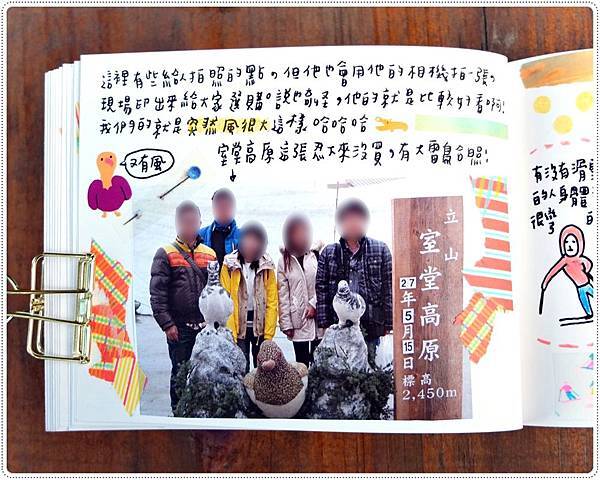 這裡有些給人拍照的點，但他也會用他的相機拍一張，
現場印出來給大家選購。說也奇怪，他的就是比較好看啊！
我們的就是突然風很大這樣 哈哈哈
室堂高原這張忍下來沒買，有大雷鳥合照！
又有風
立山
室堂高原
27年5月15日
標高
2,450m
有沒有滑
的人身體
很